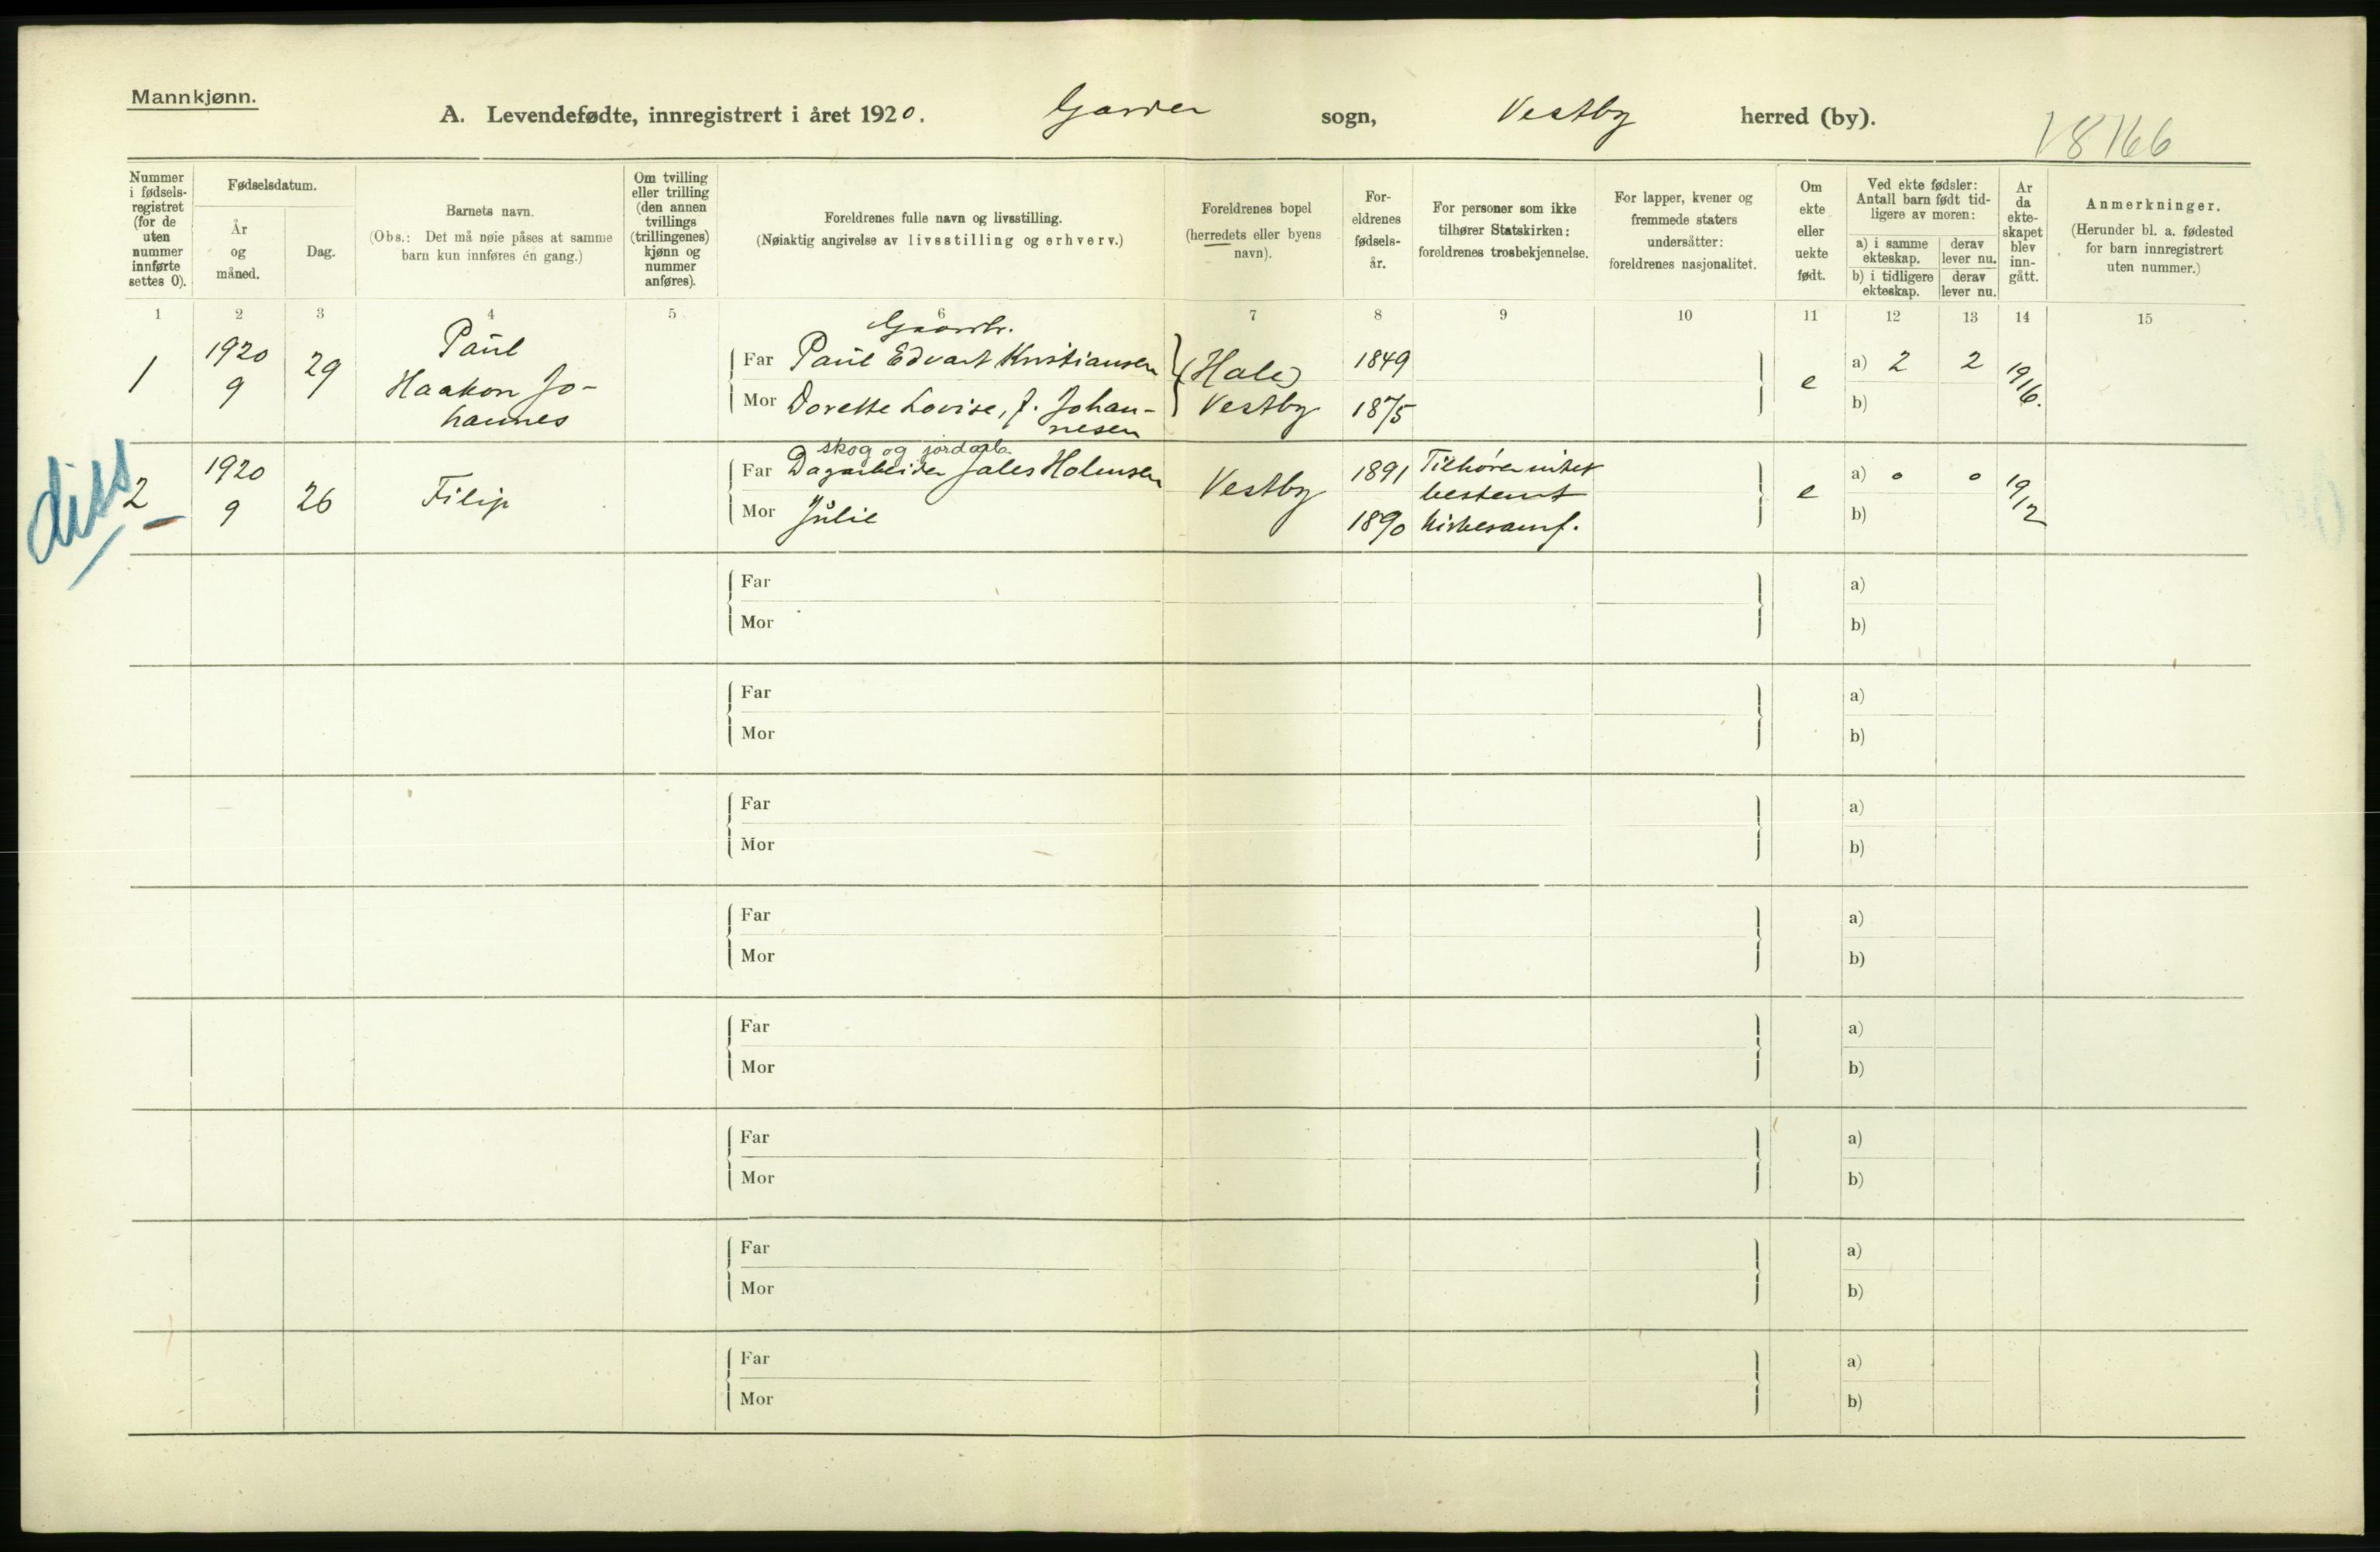 Mannkjønn.
A. Levendefødte, innregistrert i året 1920. Garder sogn, Vestby herred (by).
18166
Nummer i fødselsregistret (for de uten nummer innførte settes 0).
Fødselsdatum.
År og måned.
Dag.
Barnets navn.
(Obs.: Det må nøie påses at samme barn kun innføres én gang.)
Om tvilling eller trilling (den annen tvillings (trillingenes) kjønn og nummer anføres).
Foreldrenes fulle navn og livsstilling.
(Nøiaktig angivelse av livsstilling og erhverv.)
Foreldrenes bopel (herredets eller byens navn).
Foreldrenes fødselsår.
For personer som ikke tilhører Statskirken: foreldrenes trosbekjennelse.
For lapper, kvener og fremmede staters undersåtter: foreldrenes nasjonalitet.
Om ekte eller uekte født.
Ved ekte fødsler: Antall barn født tidligere av moren:
a) i samme ekteskap.
derav lever nu.
b) i tidligere ekteskap.
derav lever nu.
Ar da ekteskapet blev inngått.
Anmerkninger.
(Herunder bl. a. fødested for barn innregistrert uten nummer.)
1 2 3 4 5 6 7 8 9 10 11 12 13 14 15
1
1920
9
29
Paul
Haakon Jo-
hannes
Gaardbr.
Far Paul Edvart Kristiansen
Mor Dorette Lovise, f. Johan-
nesen
(Hale)
Vestby
1849
1875
e
a) 2 2
b)
1916.
diss
2
1920
9
26
Filip
skog og jordarb.
Far Dagarbeider Jales Holmsen
Mor Julie
Vestby
1891
1890
Tilhører intet
bestemt
kirkesamf.
e
a) 0 0
b)
1912
Far a)
Mor b)
Far a)
Mor b)
Far a)
Mor b)
Far a)
Mor b)
Far a)
Mor b)
Far a)
Mor b)
Far a)
Mor b)
Far a)
Mor b)